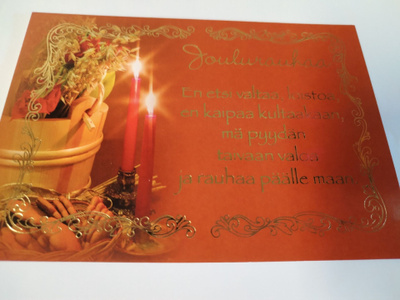 Joulurauhaa
En etsi valtaa, loistoa,
en kaipaa kultaakaan,
mä pyydän
taivaan valoa
ja rauhaa päälle maan